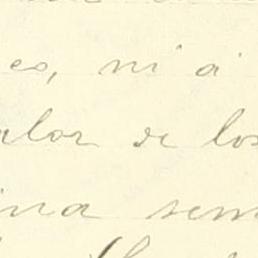 es, ni á
alor de los
ina sem